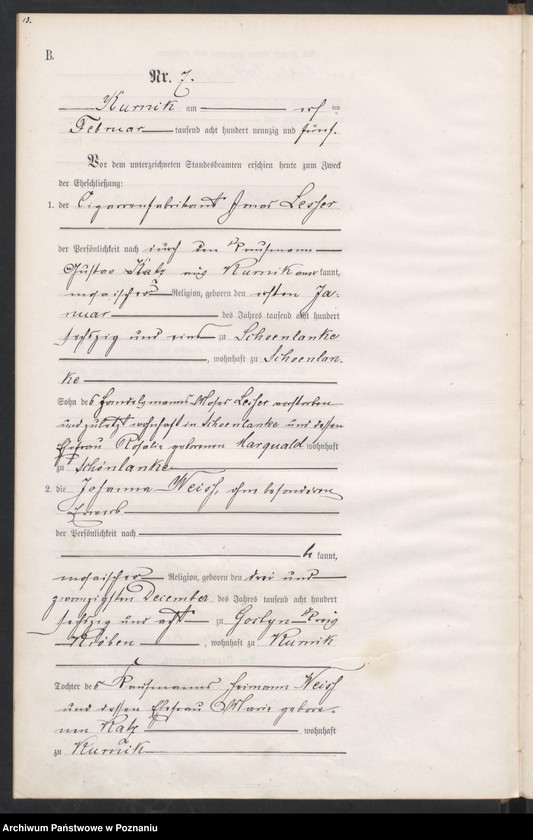 13.
B.
Nr. 7.
Kurnik am elf ten
Februar tausend acht hundert neunzig und fünf.
Vor dem unterzeichneten Standesbeamten erschien heute zum Zweck
der Eheschließung:
1. der Cigarrenfabrikant Jonas Lesser
der Persönlichkeit nach durch den Kaufmann
Gustav Katz aus Kurnik anerkannt,
mosaischer Religion, geboren den ersten Ja-
nuar des Jahres tausend acht hundert
sechszig und eins zu Schoenlanke
, wohnhaft zu Schoenlan-
ke
Sohn des Handelsmanns Moses Lesser verstorben
und zuletzt wohnhaft in Schoenlanke und dessen
Ehefrau Rosalie geborenen Marquald wohnhaft
zu Schönlanke
2. die Johanna Weiss, ohne besonderen
Erwerb
der Persönlichkeit nach
be kannt,
mosaischer Religion, geboren den drei und
zwanzigsten December des Jahres tausend acht hundert
sechszig und acht zu Gostyn Kreis
Kröben, wohnhaft zu Kurnik
Tochter des Kaufmanns Heimann Weiss
und dessen Ehefrau Marie gebore-
nen Katz wohnhaft
zu Kurnik
Archiwum Państwowe w Poznaniu